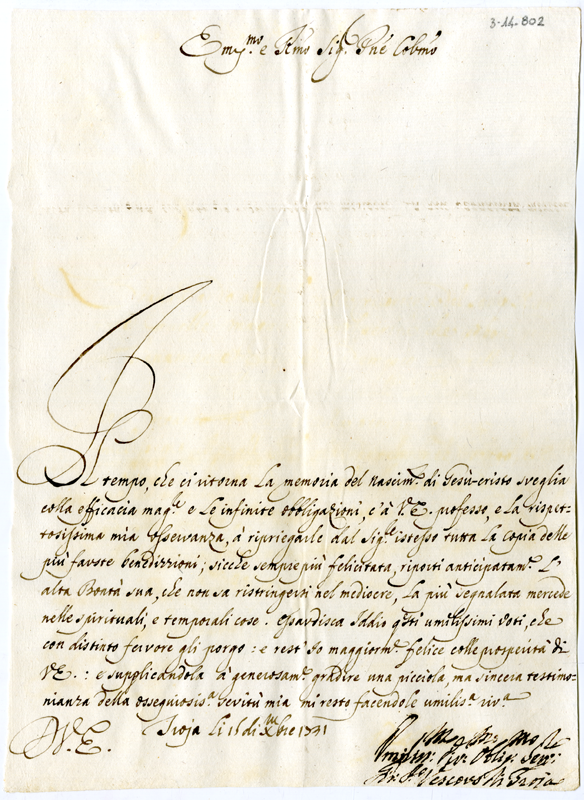 3-14-802
Em̃o e Rm̃o Sig.r Pñe Colm̃o
Il tempo, che ci ritorna la memoria del nascim.o di Gesù-cristo sveglia
colla efficacia mag.e e le infinite obbligazioni, c'à V.E. professo, e la rispet-
tosissima mia osservanza, à ripriegarle dal Sig.e istesso tutta la copia delle
più fauste benedizzioni; sicche sempre più felicitata, riporti anticipatam.e l'
alta Bontà sua, che non sa ristringersi nel mediocre, la più segnalata mercede
nelle spirituali, e temporali cose. Esaudisca Iddio q̃sti umilissimi voti, che
con distinto fervore gli porgo: e rest'Io maggiorm.e felice colle prosperità di
V.E.: e supplicandola à generosam.e gradire una picciola, ma sincera testimo-
nianza della ossequiosis.a servitù mia mi resto facendole umilis.a riv.a
V.E. Troja li 15 di Xbre 1731
Vescovo di Troja